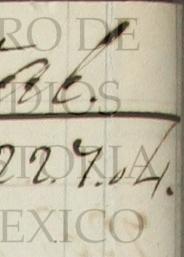 RO DE
ab.
DIOS
22.7.04.
TORIA
EXICO